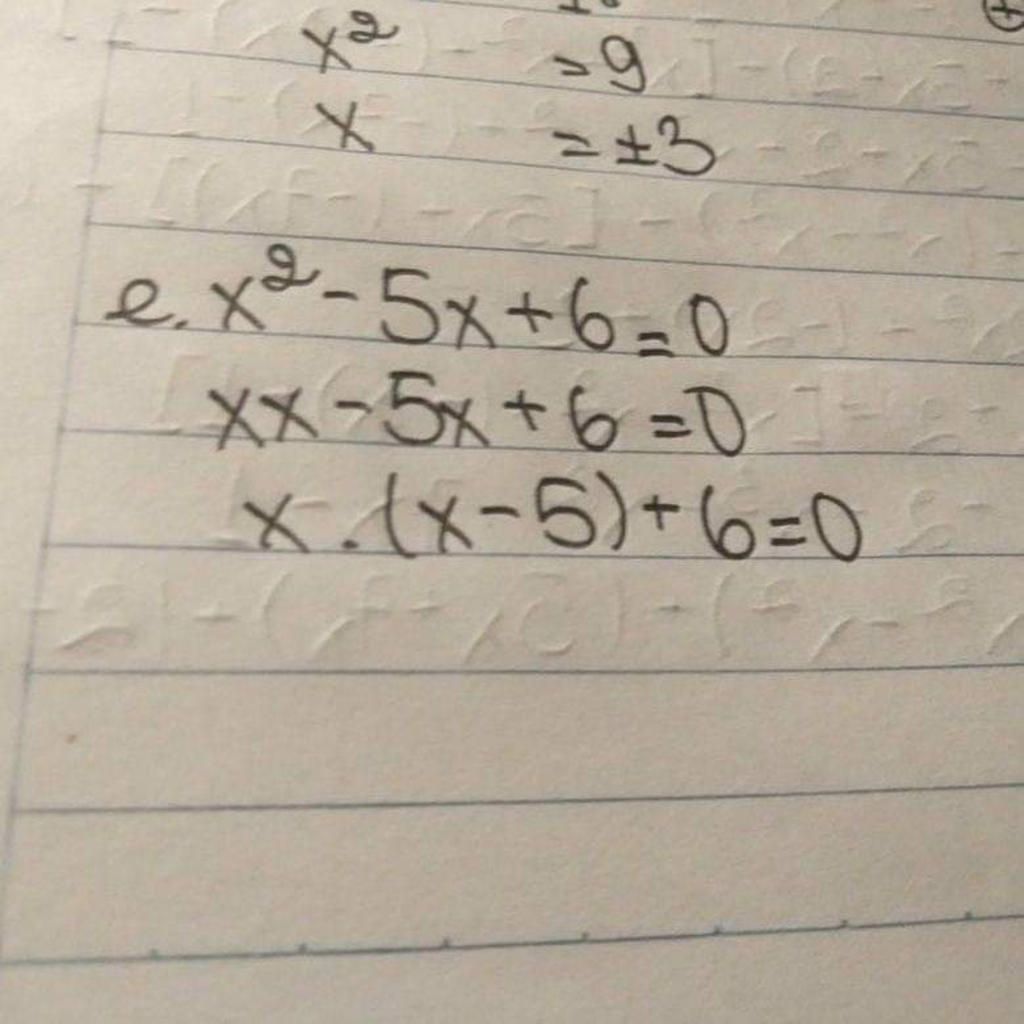 x² = 9
x = ±3
e. x² - 5x + 6 = 0
xx - 5x + 6 = 0
x . (x - 5) + 6 = 0